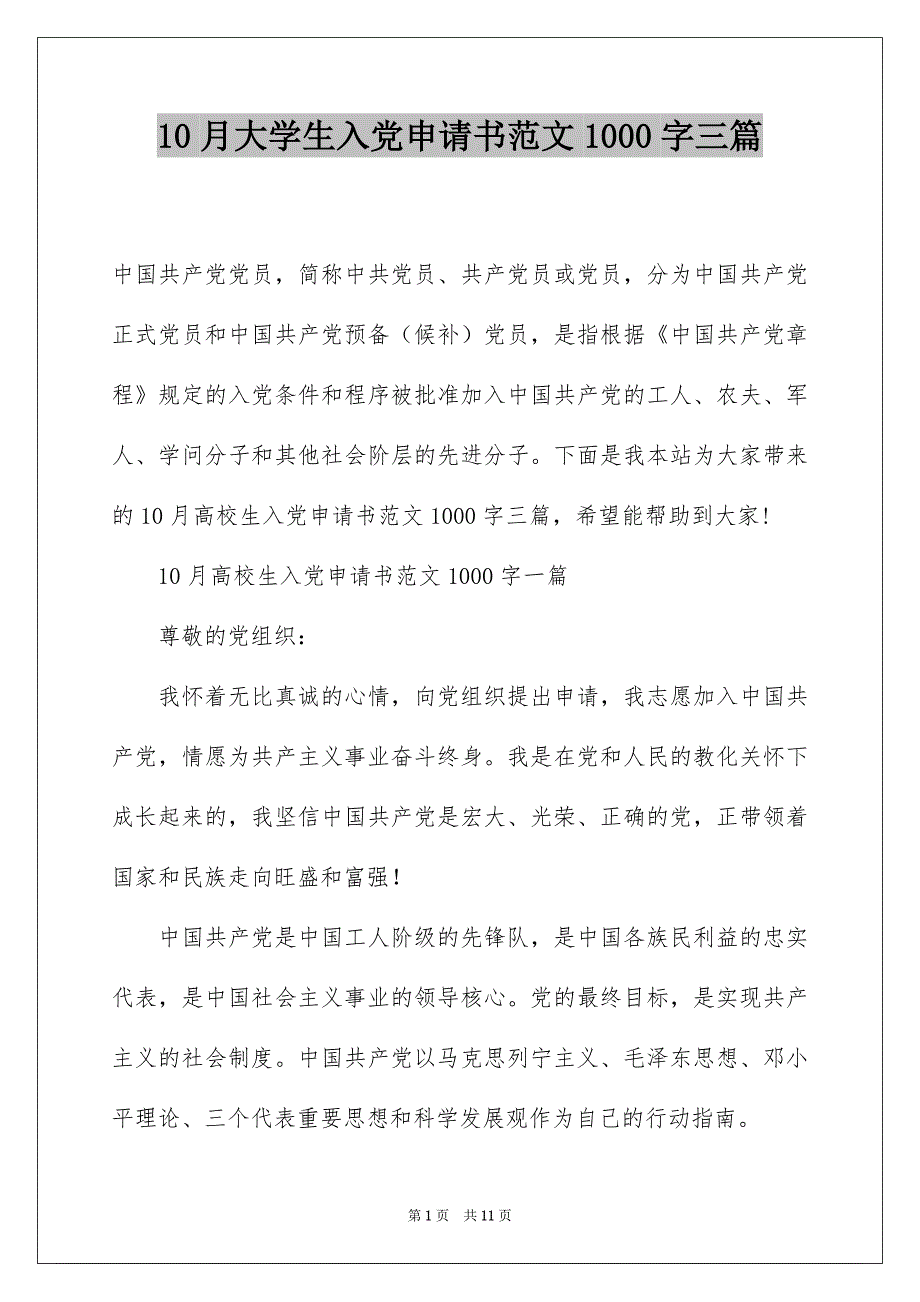 10月大学生入党申请书范文1000字三篇
中国共产党党员，简称中共党员、共产党员或党员，分为中国共产党
正式党员和中国共产党预备（候补）党员，是指根据《中国共产党章
程》规定的入党条件和程序被批准加入中国共产党的工人、农夫、军
人、学问分子和其他社会阶层的先进分子。下面是我本站为大家带来
的10月高校生入党申请书范文1000字三篇，希望能帮助到大家!
10月高校生入党申请书范文1000字一篇
尊敬的党组织：
我怀着无比真诚的心情，向党组织提出申请，我志愿加入中国共
产党，情愿为共产主义事业奋斗终身。我是在党和人民的教化关怀下
成长起来的，我坚信中国共产党是宏大、光荣、正确的党，正带领着
国家和民族走向旺盛和富强！
中国共产党是中国工人阶级的先锋队，是中国各族民利益的忠实
代表，是中国社会主义事业的领导核心。党的最终目标，是实现共产
主义的社会制度。中国共产党以马克思列宁主义、毛泽东思想、邓小
平理论、三个代表重要思想和科学发展观作为自己的行动指南。
第1页 共11页